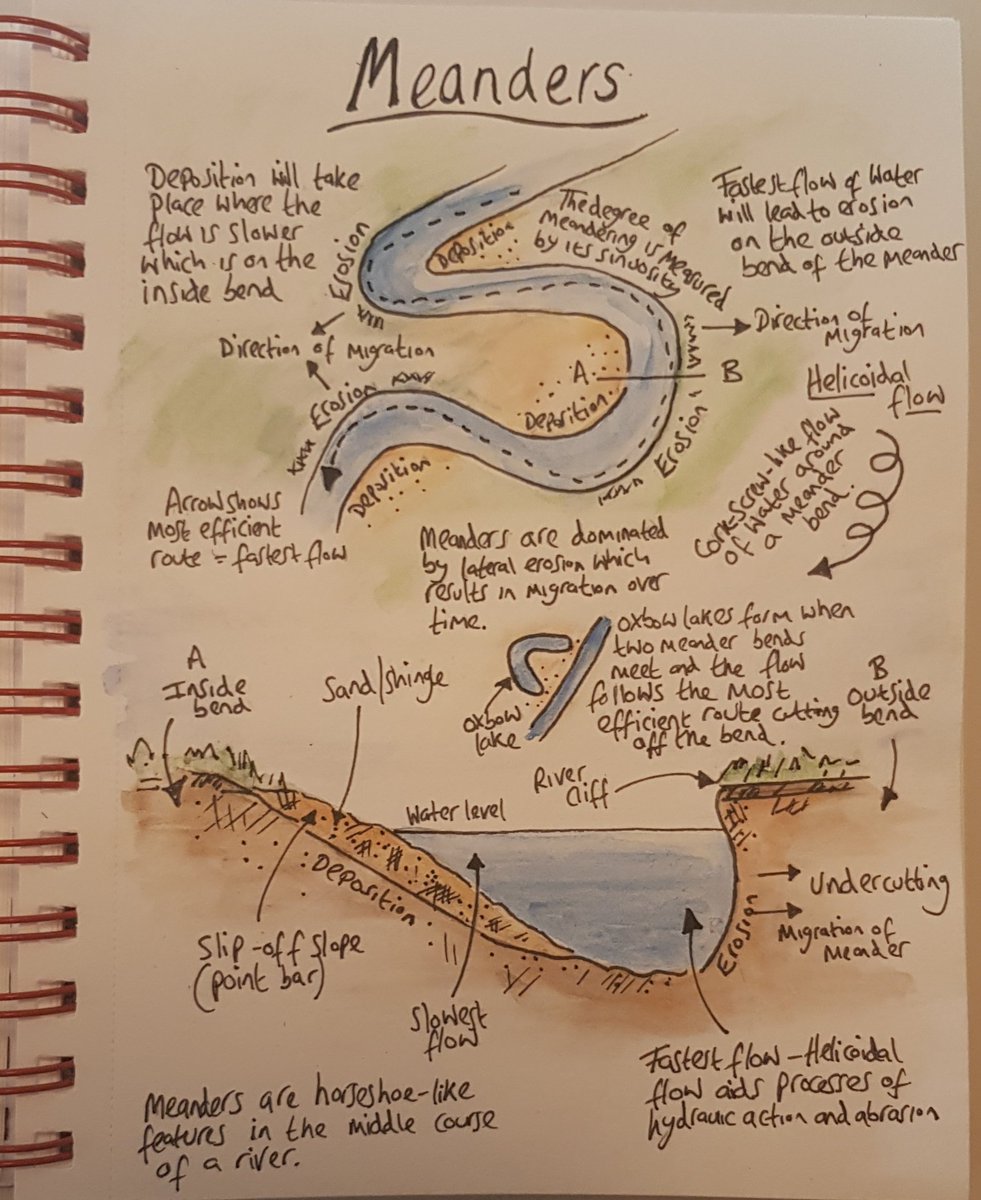 Meanders
Deposition will take
place where the
flow is slower
which is on the
inside bend
Erosion
Deposition
The degree of
meandering is measured
by its sinuosity
Fastest flow of water
will lead to erosion
on the outside
bend of the meander
Direction of
Migration
Direction of Migration
Erosion
A
B
Deposition
Erosion
Deposition
Helicoidal
flow
Cork-screw-like flow
of water around
a meander
bend.
Arrow shows
most efficient
route = fastest flow
Meanders are dominated
by lateral erosion which
results in migration over
time.
oxbow lakes form when
two meander bends
meet and the flow
follows the most
efficient route cutting
off the bend.
oxbow
lake
A
Inside
bend
Sand/shinge
B
outside
bend
River
Cliff
Water level
Deposition
Slip-off slope
(point bar)
Slowest
flow
Erosion
Undercutting
Migration of
Meander
Fastest flow - Helicoidal
flow aids processes of
hydrauic action and abrasion
Meanders are horseshoe-like
features in the middle course
of a river.